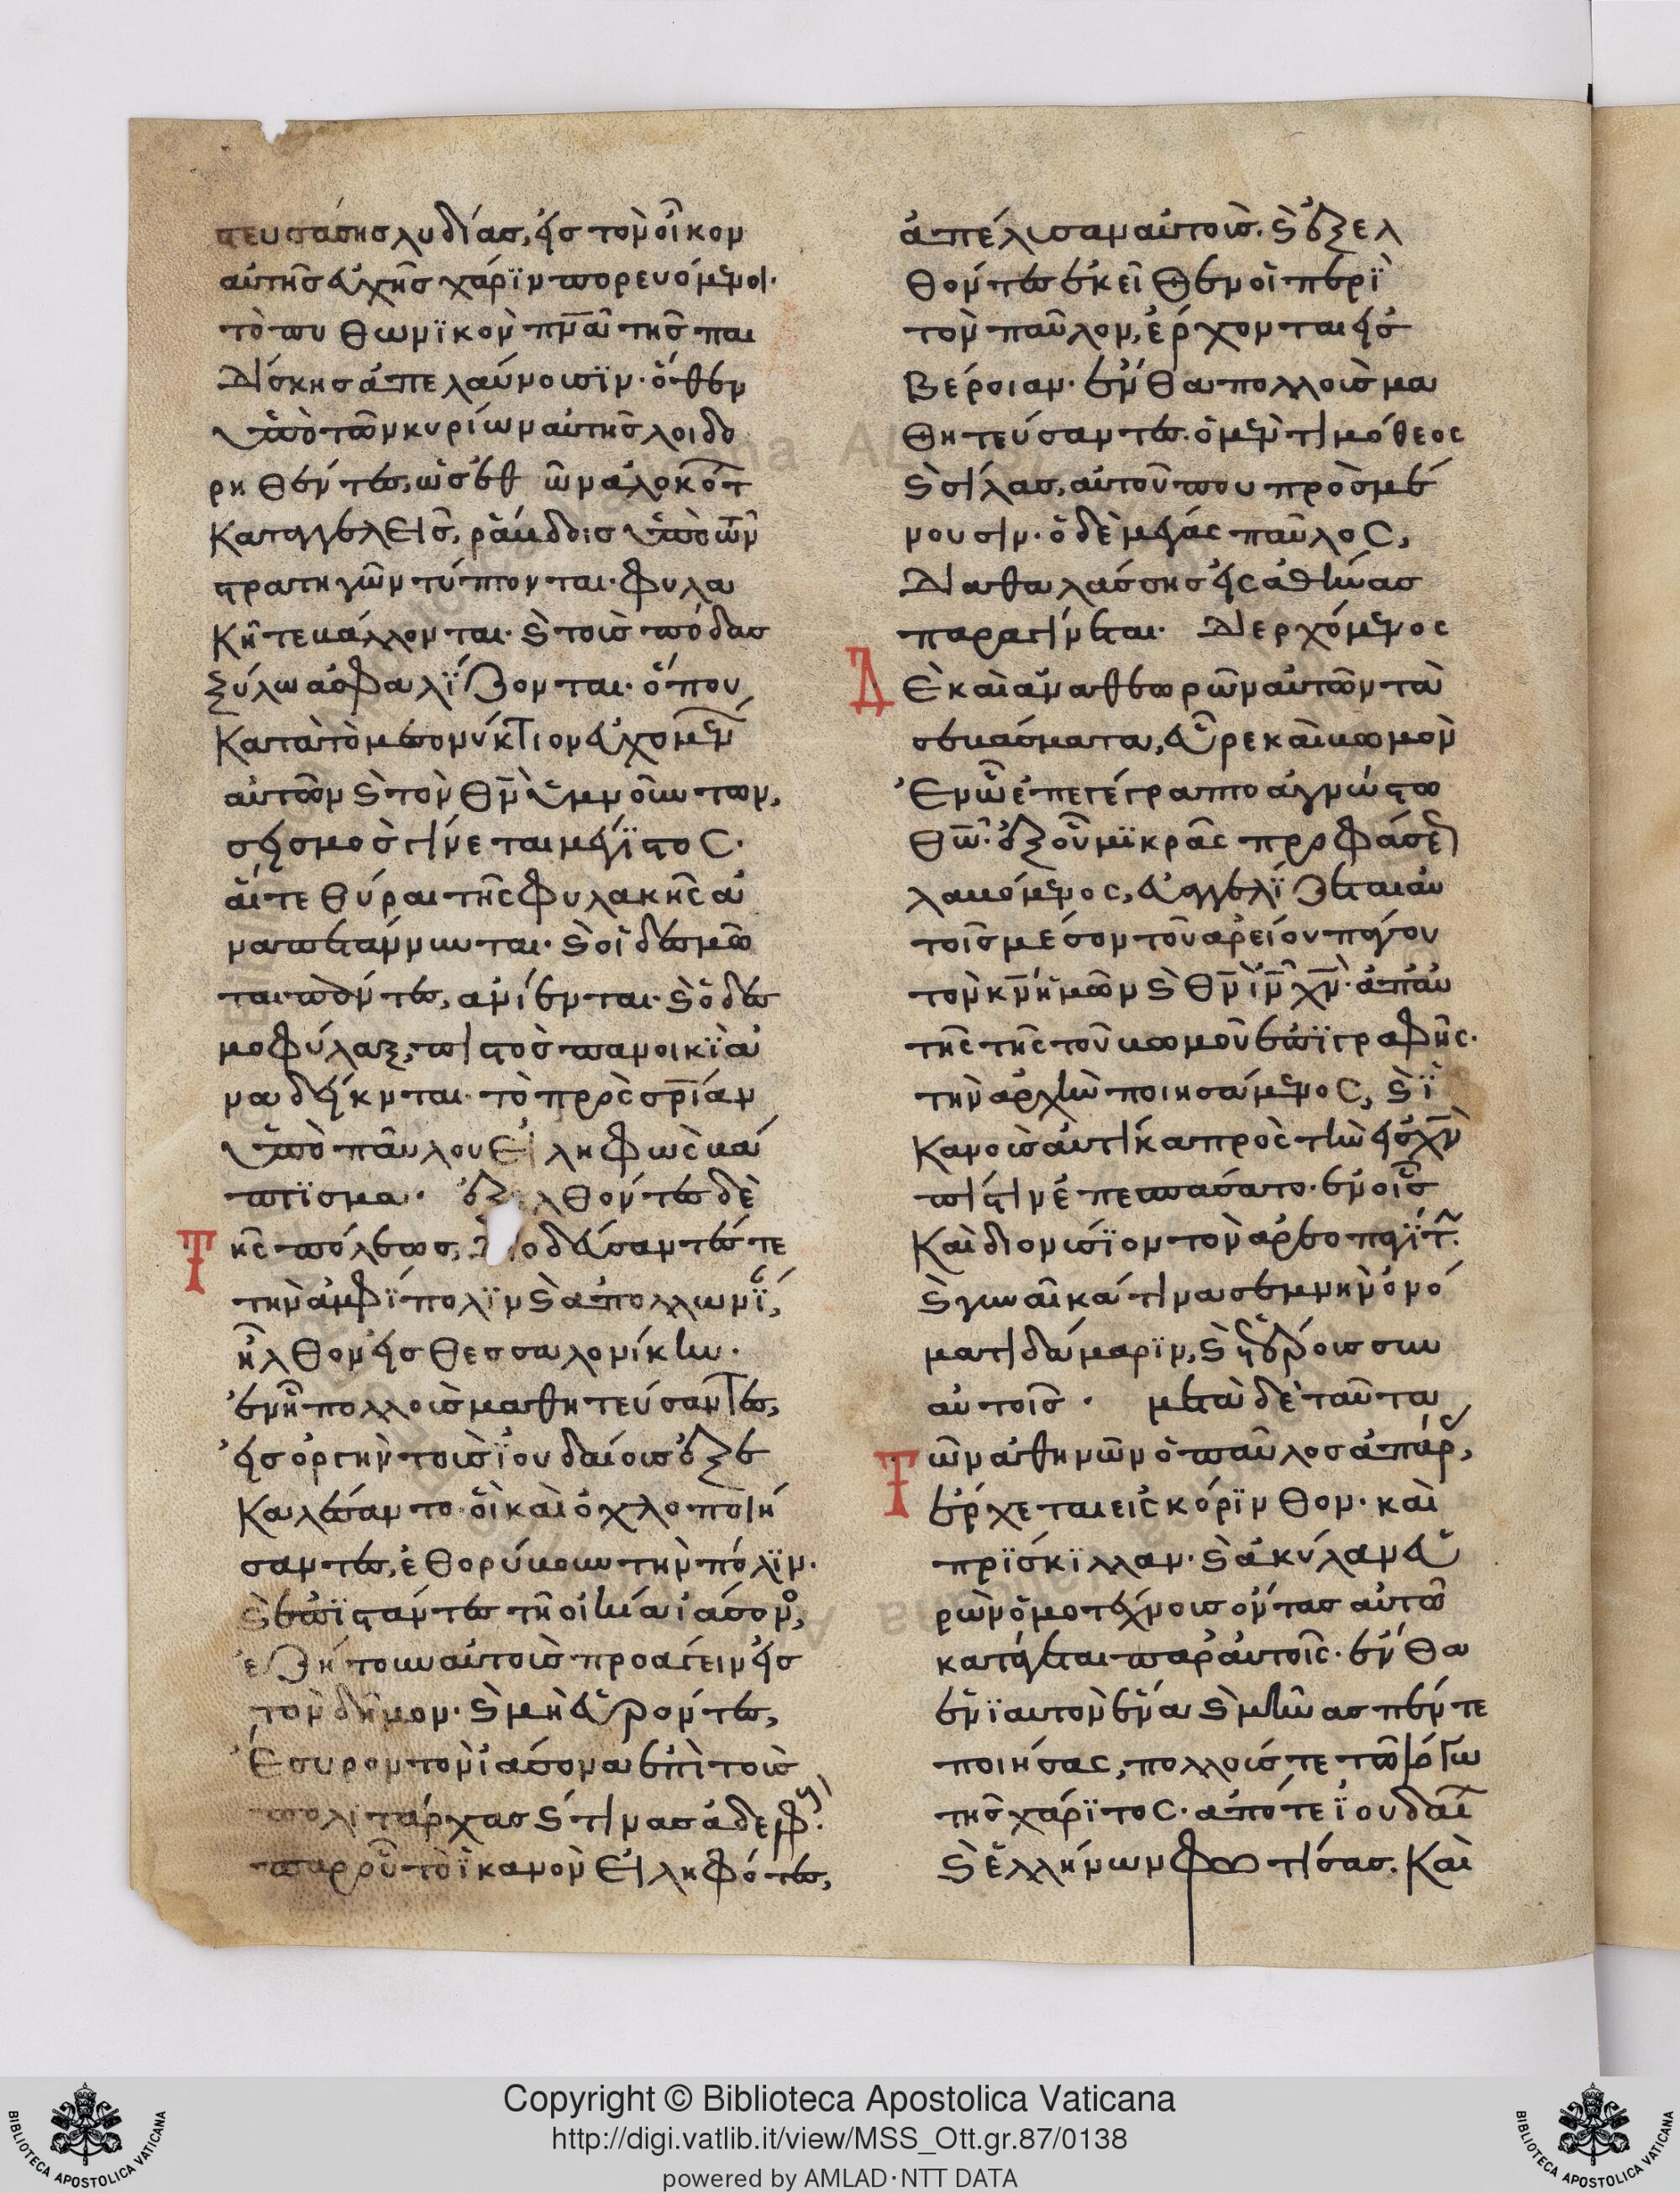 στευσάσης λυδίας, εἰς τὸν οἶκον
αὐτῆς εὐχῆς χάρϊν πορευόμενοι·
τὸ πυθωνϊκὸν πνα τῆς παι
δίσκης ἀπελαύνουσϊν· ὅθεν
ὑπὸ τῶν κυρίων αὐτῆς λοιδο
ρηθέντες, ὡς ἐθῶν ἀλοκότ
καταγγελεῖς, ράβδοις ὑπὸ τῶν
στρατηγῶν τύπτονται· φυλα
κῆ τε βάλλονται· καὶ τοὺς πόδας
ξύλω ἀσφαλΐζονται· ὅπου
κατὰ τὸ μεσονύκτιον εὐχομέν
αὐτῶν καὶ τὸν θν ὑμνούντων,
σεισμὸς γίνεται μέγϊστος·
αἵ τε θύραι τῆς φυλακῆς ἀ
ναπετάννυνται· καὶ οἱ δεσμῶ
ται πάντες, ἀνίενται· καὶ ὁ δεσ
μοφύλαξ, πιστὸς πανοικϊ ἀ
ναδείκνται· τὸ πρὸς σρίαν
ὑπὸ παύλου εἰληφὼς βά
πτϊσμα· ἐξελθόντες δὲ
τῆς πόλεως, διοδεύσαντές τε
τὴν ἀμφΐπολϊν καὶ ἀπολλωνΐ,
ἦλθον εἰς θεσσαλονίκην·
ἐν ἧ πολλοὺς μαθητεύσαντες,
εἰς ὀργὴν τοὺς ϊουδαίους ἐξε
καλέσαντο· οἳ καὶ ὀχλοποιή
σαντες, ἐθορύβουν τὴν πόλϊν·
καὶ ἐπϊστάντες τῆ οἰκία ἰάσον,
ἐζήτουν αὐτοὺς προαγειν εἰς
τὸν δῆμον· καὶ μὴ εὑρόντες,
ἔσυρον τὸν ἰάσονα ἐπὶ τοὺς
πολιτάρχας καί τινας ἀδελφ·
παρ' οὗ τὸ ϊκανὸν εἰληφότες,
ἀπέλυσαν αὐτούς· καὶ ἐξελ
θόντες ἐκεῖθεν οἱ περϊ
τὸν παῦλον, ἔρχονται εἰς
βέροιαν· ἔνθα πολλοὺς μα
θητεύσαντες· ὁ μὲν τιμόθεος
καὶ σίλας, αὐτοῦ που προσμέ
νουσιν· ὁ δὲ μέγας παῦλος,
διὰ θαλάσσης εἰς ἀθήνας
παραγίνεται· διερχόμενος
δὲ καὶ ἀναθεωρῶν αὐτῶν τὰ
σεβάσματα, εὗρε καὶ βωμὸν
ἐν ὧ ἐπεγέγραπτο ἀγνώστω
θω· ἐξ οὗ μϊκρᾶς προφάσε
λαβόμενος, εὐαγγελΐζεται αὐ
τοῖς μέσον τοῦ ἀρείου πάγου
τὸν κν ἡμῶν καὶ θν ϊν χν· ἀπ' αὐ
τῆς τῆς τοῦ βωμοῦ ἐπϊγραφῆς·
τὴν ἀρχὴν ποιησάμενος, καὶ ϊ
κανοὺς αὐτίκα πρὸς τὴν εἰς χν
πίστιν ἐπεσπάσατο· ἐν οἷς
καὶ διονύσϊον τὸν ἀρεοπαγΐτ·
καὶ γυναῖκά τινα σεμνὴν ὀνό
ματι δάμαρϊν, καὶ ἑτέρους σὺν
αὐτοῖς· μετὰ δὲ ταῦτα
τῶν ἀθηνῶν ὁ παῦλος ἀπάρ,
ἔρχεται εἰς κόρϊνθον· καὶ
πρϊσκϊλλαν· καὶ ἀκύλαν εὑ
ρὼν ὁμοτέχνους ὄντας αὐτῶ
κατάγεται παρ' αὐτοῖς· ἔνθα
ἐνϊαυτὸν ἕνα καὶ μῆνας πέντε
ποιήσας, πολλούς τε τῶ λόγω
τῆς χάρϊτος· ἀπό τε ϊουδαί
καὶ ἑλλήνων φωτίσας· καὶ
Copyright © Biblioteca Apostolica Vaticana
http://digi.vatlib.it/view/MSS_Ott.gr.87/0138
powered by AMLAD·NTT DATA
BIBLIOTECA APOSTOLICA VATICANA
BIBLIOTECA APOSTOLICA VATICANA